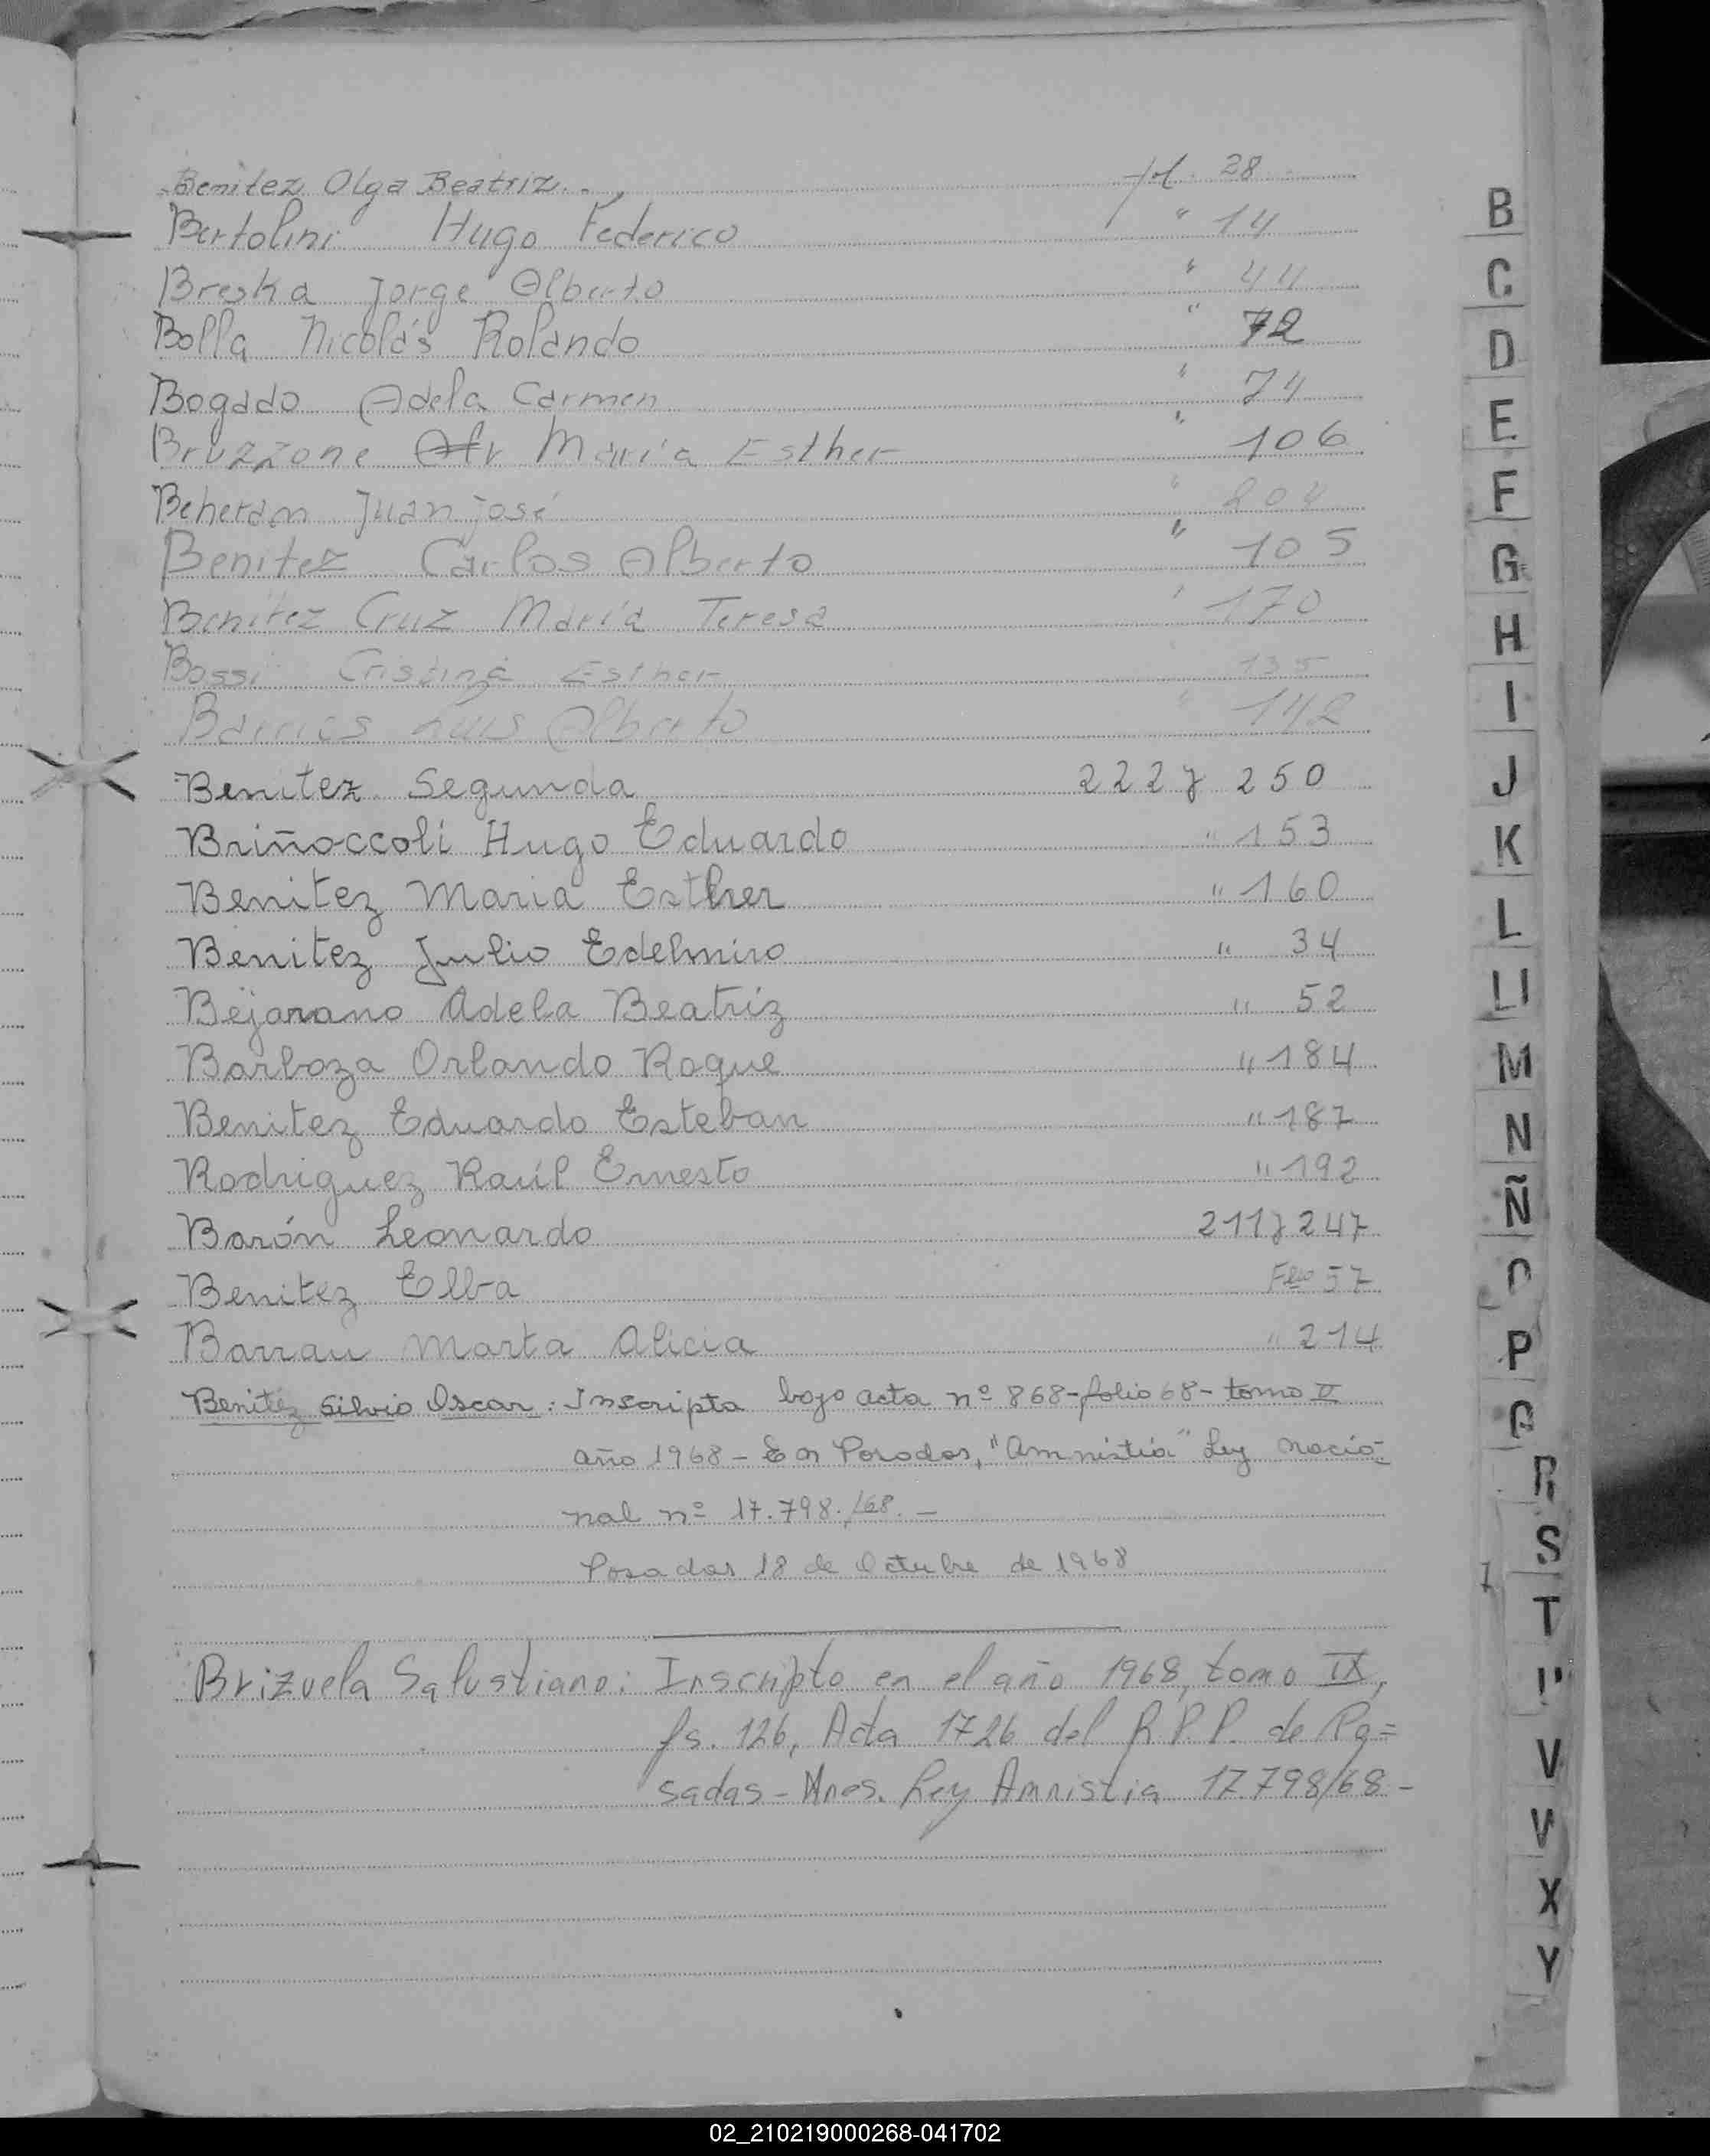 Benitez Olga Beatriz fl. 28
Bertolini Hugo Federico " 14
Breska Jorge Alberto " 44
Bolla Nicolás Rolando " 72
Bogado Adela Carmen " 74
Bruzzone Maria Esther " 106
Beheran Juan josé " 204
Benitez Carlos Alberto " 105
Benitez Cruz María Teresa " 170
Bossi Cristina Esther 135
Barrios Luis Alberto " 142
Benitez Segunda 222 y 250
Briñoccoli Hugo Eduardo " 153
Benitez Maria Esther " 160
Benitez Julio Edelmiro " 34
Bejarano Adela Beatriz " 52
Barboza Orlando Roque " 184
Benitez Eduardo Esteban " 187
Rodriguez Raúl Ernesto " 192
Barón Leonardo 211 y 247
Benitez Elba Flio 57
Barrau Marta Alicia " 214
Benitez Silvio Oscar: Inscripta bajo acta nº 868-folio 68- tomo V
año 1968 - En Posadas, "Amnistia" Ley nacio-
nal nº 17.798./68. -
Posadas 18 de Octubre de 1968
Brizuela Salustiano: Inscripto en el año 1968, tomo IX,
fs. 126, Acta 1726 del R.P.P. de Po=
sadas - Mnes. Ley Amnistia 17.798/68 -
B
C
D
E
F
G
H
I
J
K
L
Ll
M
N
Ñ
O
P
Q
R
S
T
U
V
V
X
Y
02_210219000268-041702